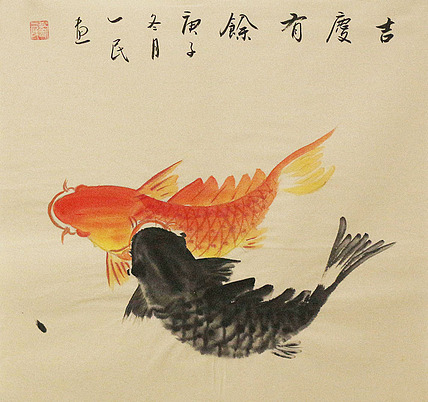 吉慶有餘
庚子
冬月
一民
画